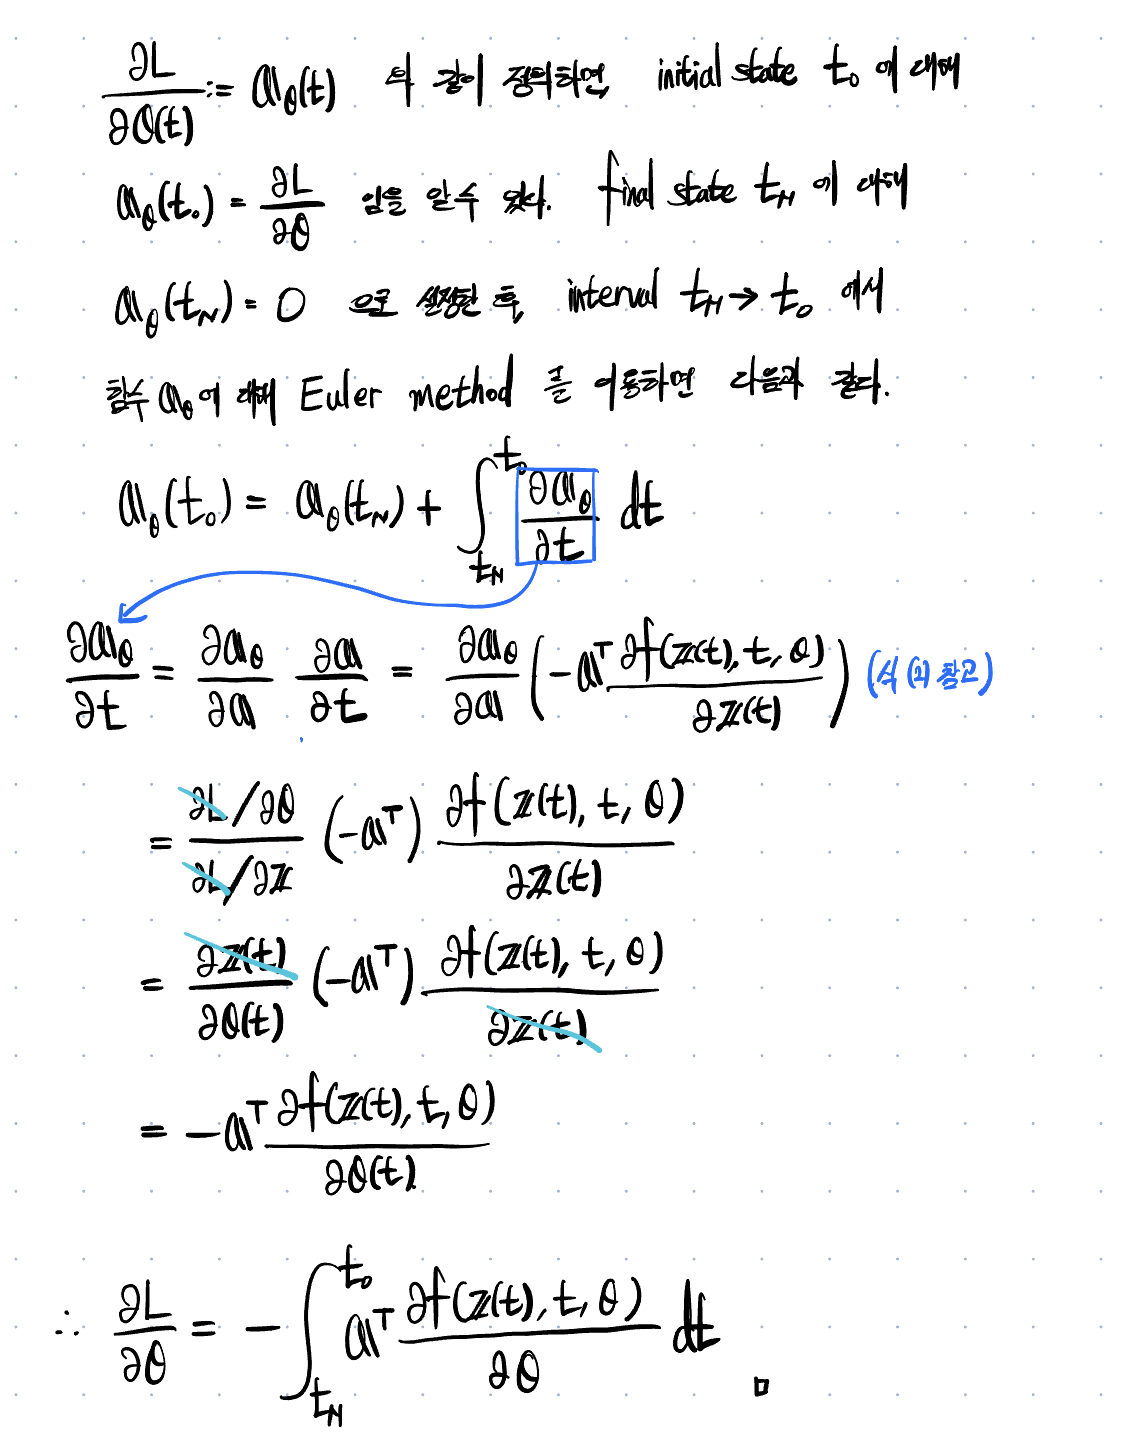 ∂L/∂θ(t) := a_θ(t) 와 같이 정의하면, initial state t₀ 에 대해
a_θ(t₀) = ∂L/∂θ 임을 알 수 있다. final state t_N 에 대해
a_θ(t_N) = 0 으로 설정한 후, interval t_N → t₀ 에서
함수 a_θ 에 대해 Euler method 를 이용하면 다음과 같다.
a_θ(t₀) = a_θ(t_N) + ∫_{t_N}^{t₀} ∂a_θ/∂t dt
∂a_θ/∂t = ∂a_θ/∂a ∂a/∂t = ∂a_θ/∂a (-a^T ∂f(z(t), t, θ)/∂z(t)) (식 (2) 참고)
= (∂L/∂θ)/(∂L/∂z) (-a^T) ∂f(z(t), t, θ)/∂z(t)
= ∂z(t)/∂θ(t) (-a^T) ∂f(z(t), t, θ)/∂z(t)
= -a^T ∂f(z(t), t, θ)/∂θ(t)
∴ ∂L/∂θ = -∫_{t_N}^{t₀} a^T ∂f(z(t), t, θ)/∂θ dt □